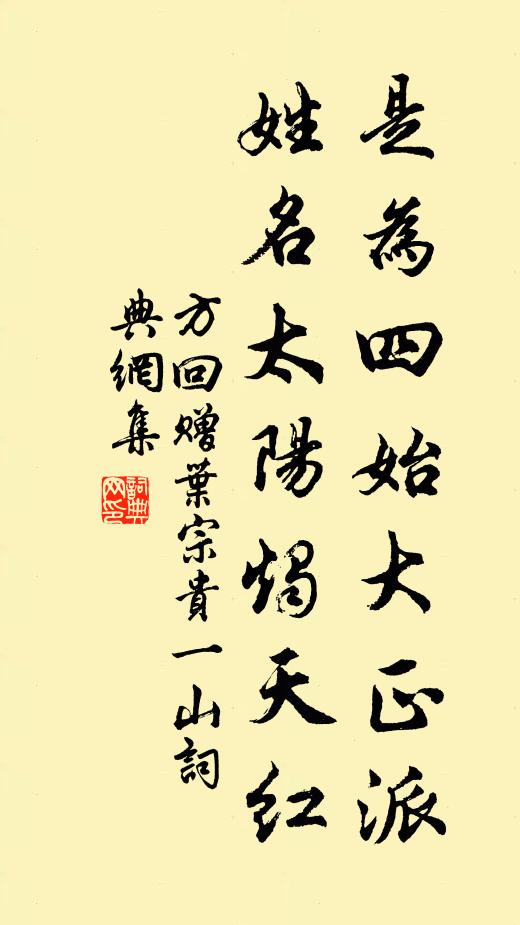 是為四始大正派
姓名太陽燭天紅
方回贈葉宗貴一山詞
典網集
詞典網印